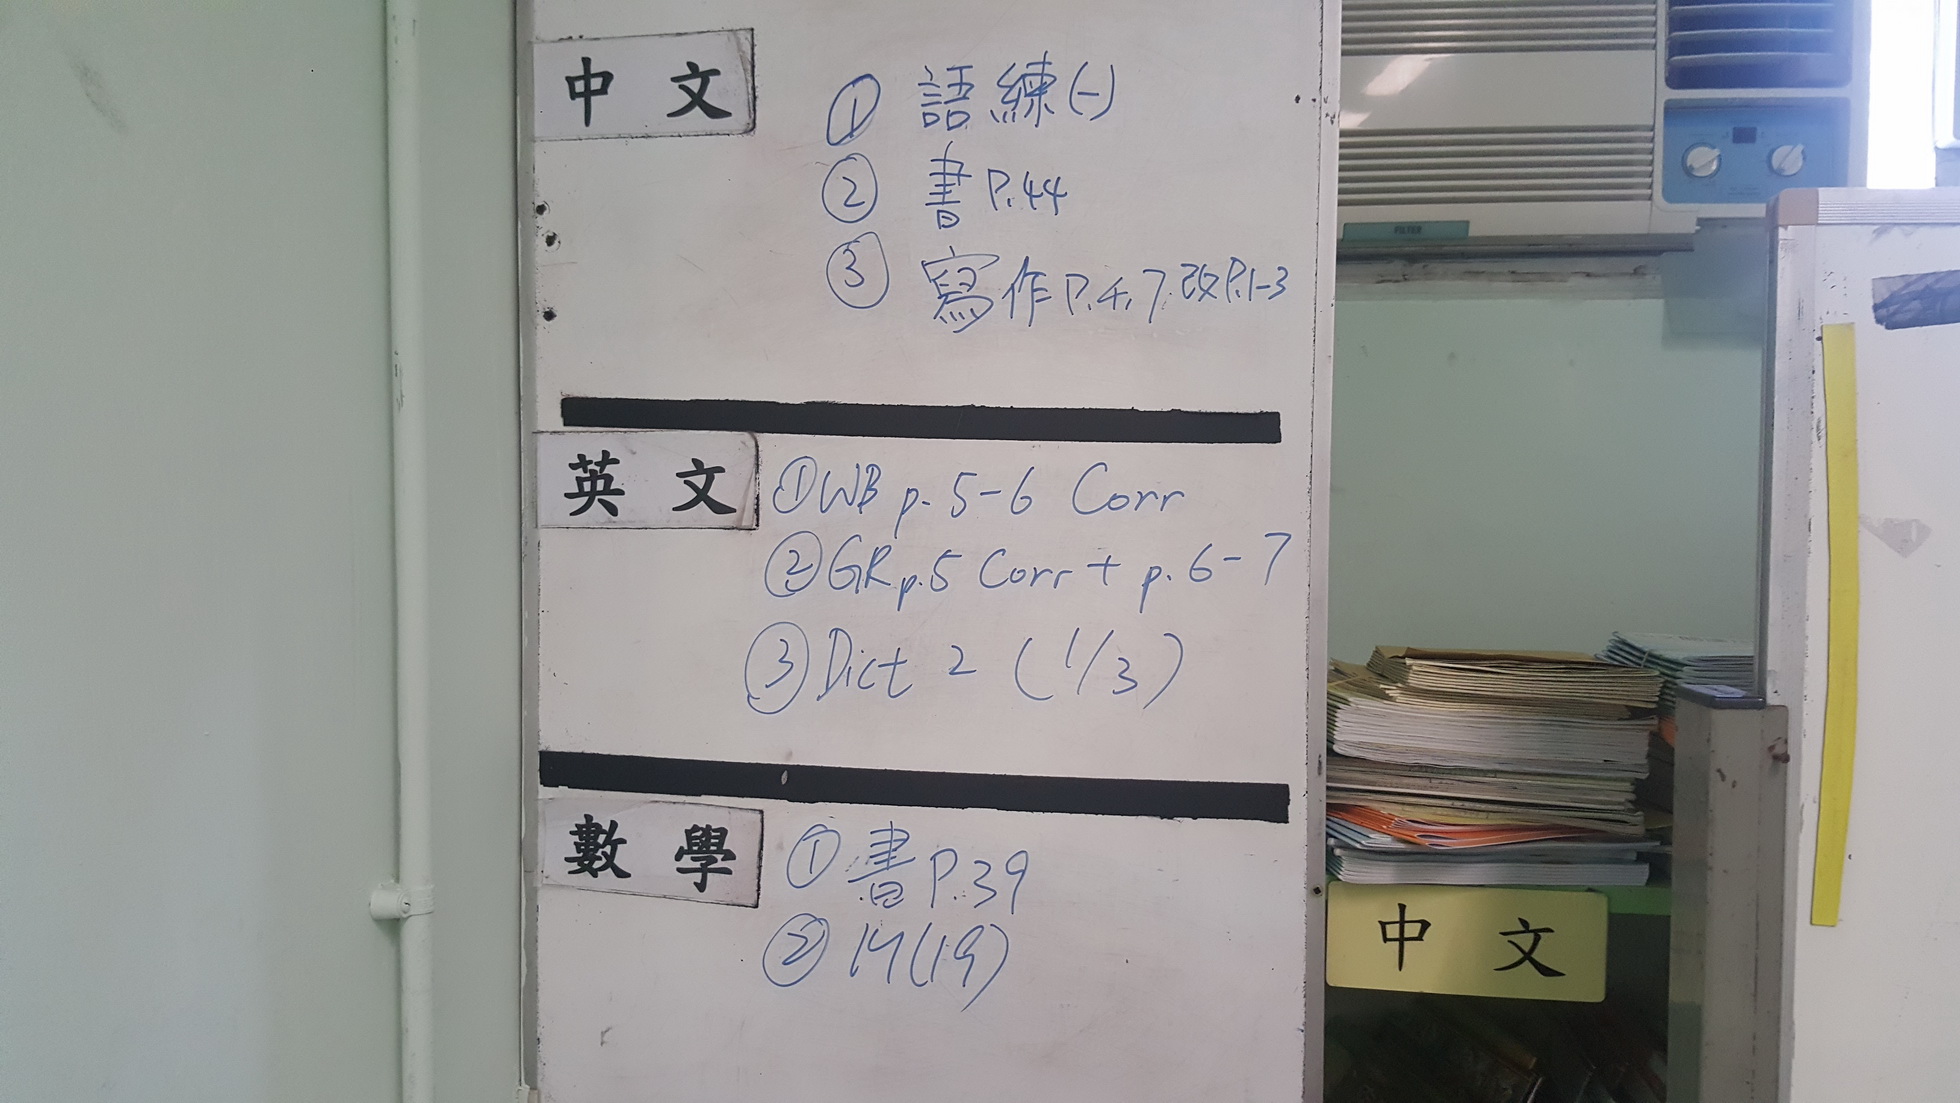 中文
① 語練(一)
② 書P.44
③ 寫作P.4,7.改P.1-3
英文
① WB p. 5-6 Corr
② GR p.5 Corr + p. 6-7
③ Dict 2 (1/3)
數學
① 書P.39
② (19)
FILTER
中文